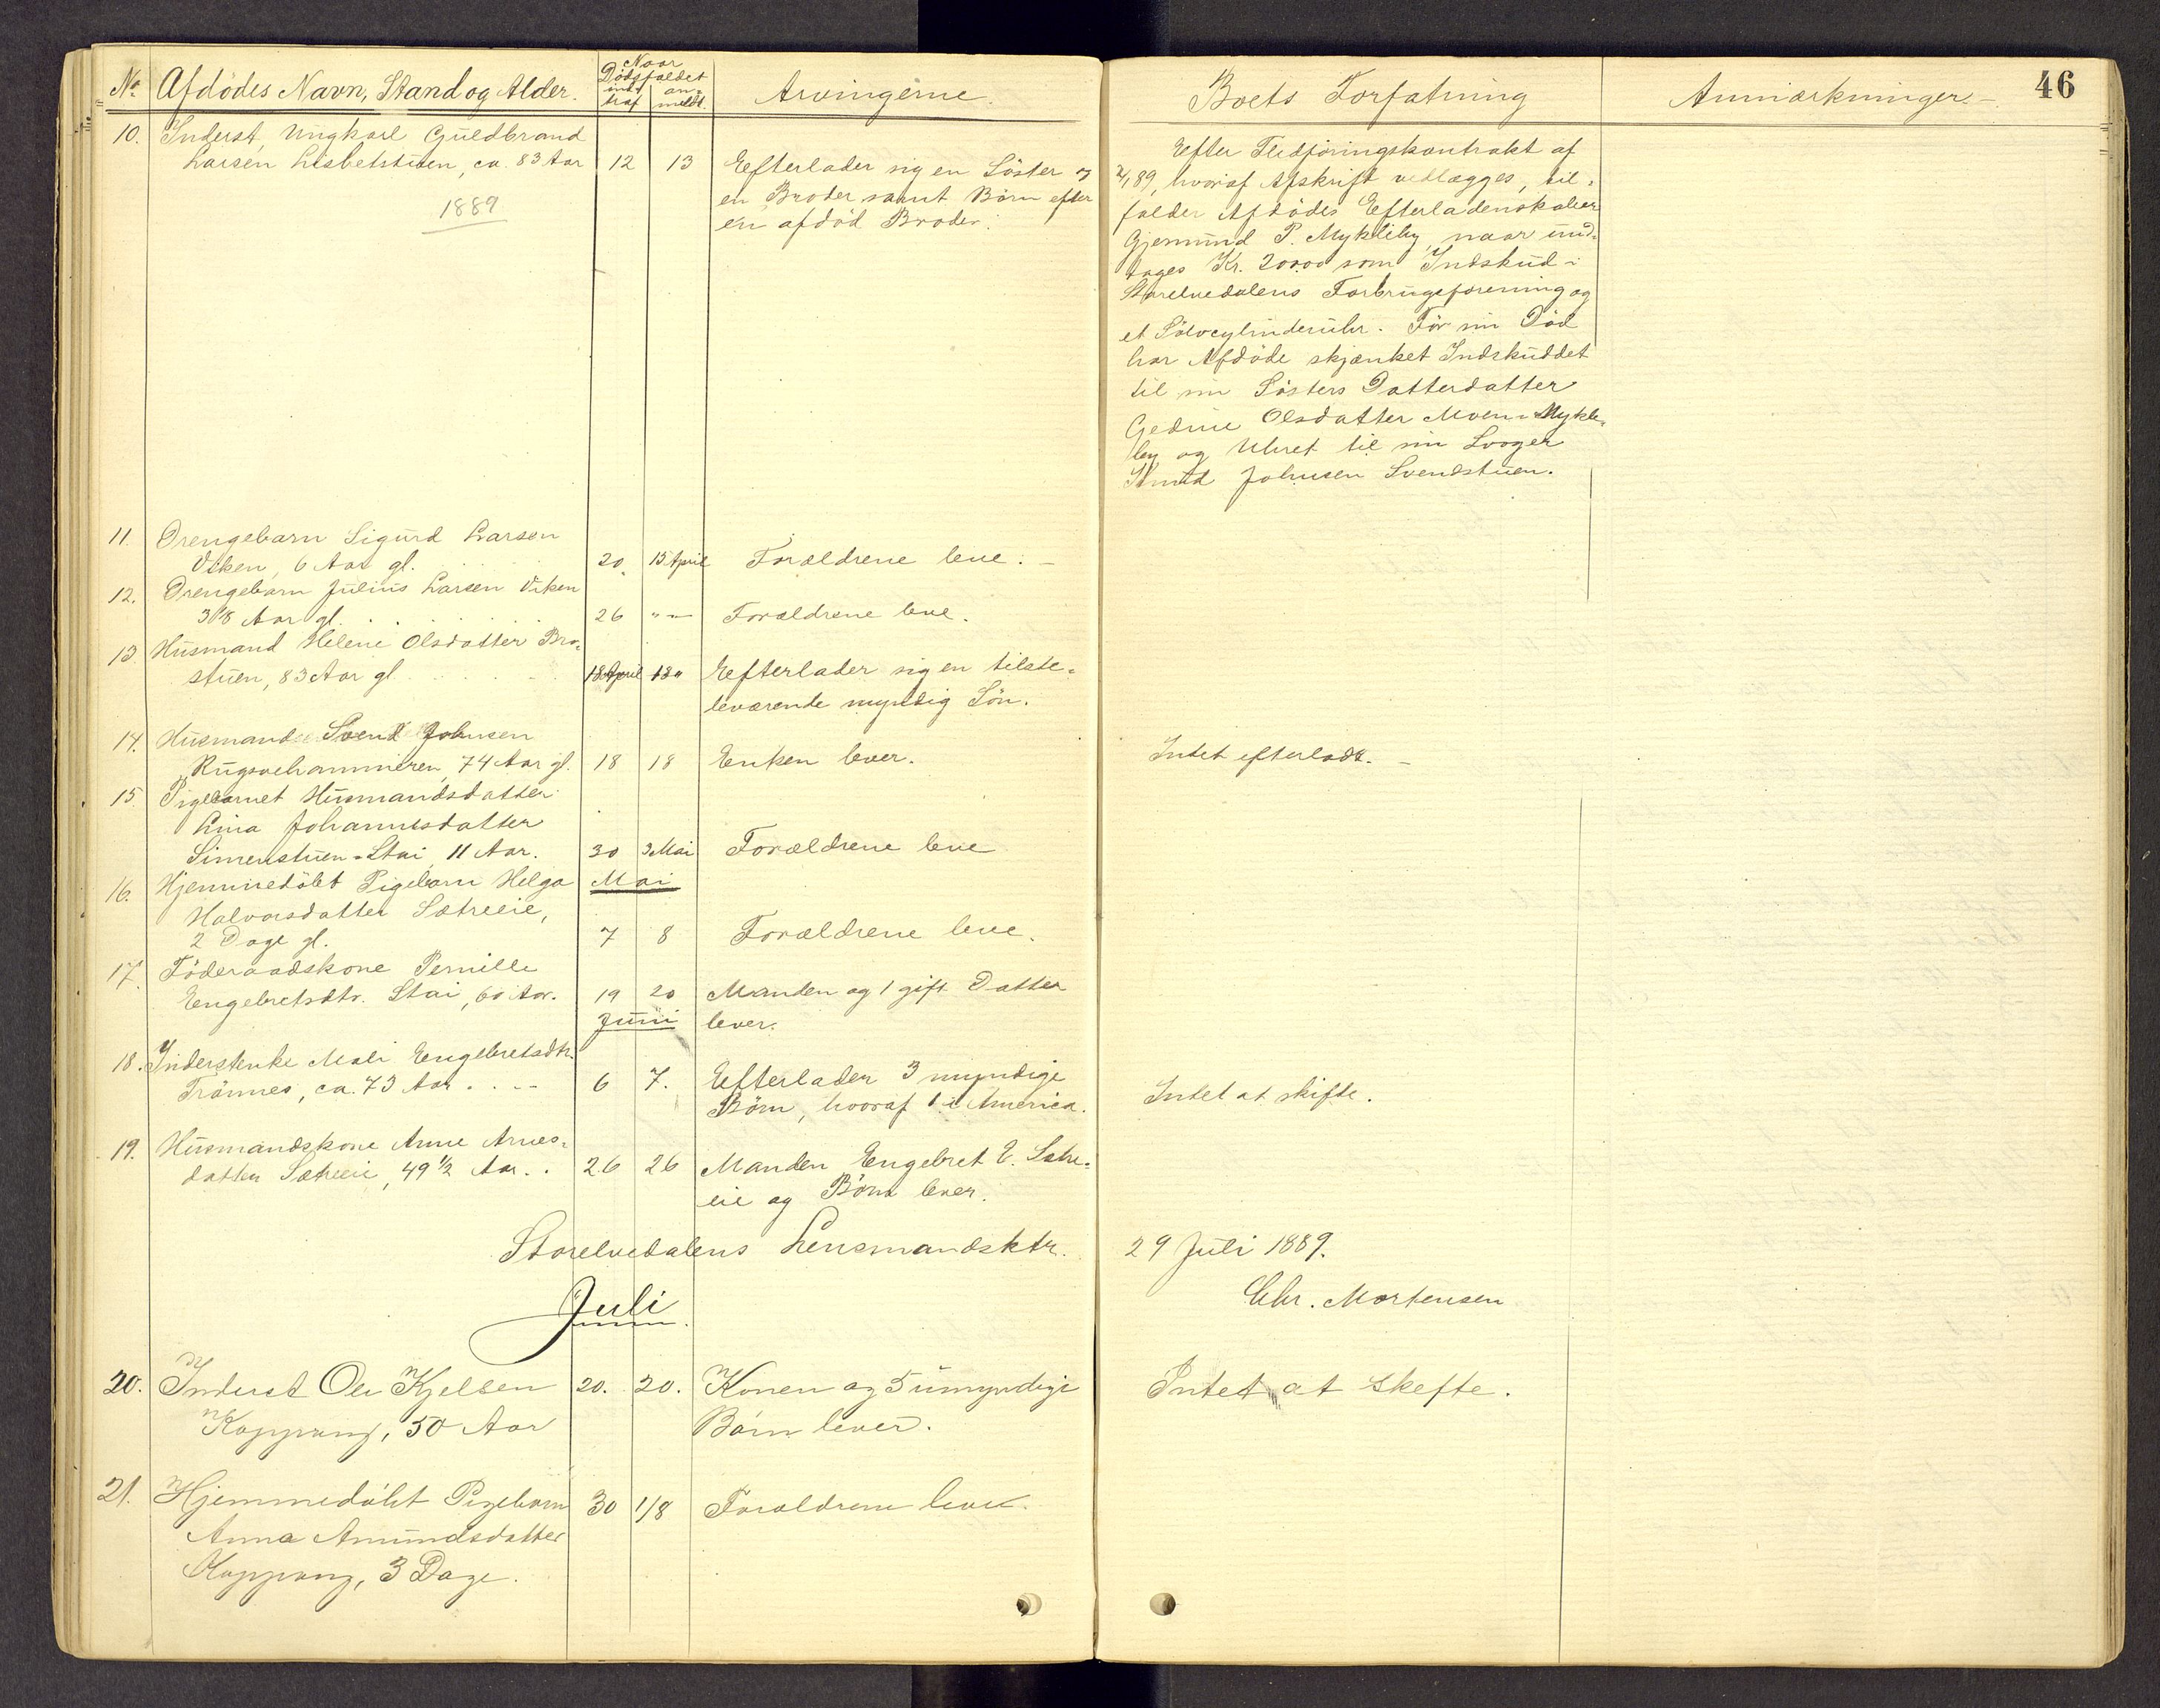 No.
Afdödes Navn, Stand og Alder.
Naar
Dödsfaldet
indtraf
anmeldt.
Arvingerne.
Boets Forfatning
Anmærkninger.
46
10. Inderst, Ungkarl Guldbrand
Larsen Lisbetstuen, ca. 83 Aar 12 13
1889
Efterlader sig en Söster og
en Broder samt Börn efter
en afdöd Broder.
Efter Fledföringskontrakt af
89, hvoraf Afskrift vedlægges, til-
falder Afdödes Efterladenskaber
Gjermund P. Mykleby, naar und-
tages Kr. 20000 som Indskud i
Storelvedalens Forbrugsforening og
et Sölvcylinderuhr. För sin Död
har Afdöde skjænket Indskuddet
til sin Sösters Datterdatter
Gedine Olsdatter Moen Mykle-
by og Uhret til sin Svoger
Johnsen Svendstuen.
11. Drengebarn Sigurd Larsen
Viken, 6 Aar gl. 20 15 April Forældrene leve. -
12. Drengebarn Julius Larsen Viken
3 1/8 Aar gl. 26 " — Forældrene leve.
13. Husmand Helene Olsdatter Bro-
stuen, 83 Aar gl. 18 April 18 " Efterlader sig en tilste-
deværende myndig Sön.
14. Husmand Svend Johnsen
Rugsvehammeren, 74 Aar gl. 18 18 Enken lever. Intet efterladt. -
15. Pigebarnet Husmandsdatter
Lina Johannesdatter
Simenstuen-Stai, 11 Aar. 30 3 Mai Forældrene leve
16. Hjemmedöbt Pigebarn Helga Mai
Halvorsdatter Sætreeie,
2 Dage gl. 7 8 Forældrene leve.
17. Föderaadskone Pernille
Engebretsdtr. Stai, 60 Aar. 19 20 Manden og 1 gift Datter
Juni lever.
18. Inderstenke Mali Engebretsdtr.
Trönnes, ca. 73 Aar. 6 7. Efterlader 3 myndige
Börn, hvoraf 1 i America.
Intet at skifte.
19. Husmandskone Anne Arnes-
datter Sætreeie, 49 1/2 Aar. 26 26 Manden Engebret E. Sætre-
eie og Börn lever.
Storelvedalens Lensmandsktr. 29 Juli 1889.
Chr. Mortensen
Juli
20. Inderst Ole Kjelsen 20. 20. Konen og 5 umyndige Intet at skefte.
Koppang, 50 Aar Börn lever.
21. Hjemmedöbt Pigebarn 30 1/8 Forældrene lever.
Anna Amundsdatter
Koppang, 3 Dage.